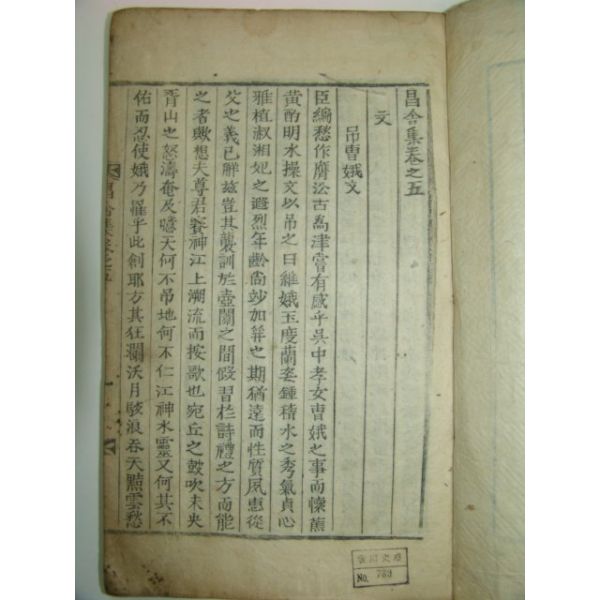 昌舍集卷之五
文
吊曺娥文
臣編愁作
古為津嘗有感乎吳中孝女曺娥之事而懷蕉
黃酌明水操文以吊之曰維娥玉度蘭姿鍾積水之秀氣貞心
雅植淑湘妃之遐烈年齡尙玅加筓之期猶遠而性質夙惠從
父之義已解故豈其襲訓於壼闈之間假習於詩禮之方而能
之者歟想夫尊君賽神江上溯流而按歌也宛丘之鼓吹未央
胥山之怒濤奄及噫天何不吊地何不仁江神水靈又何其不
佑而忍使娥乃罹乎此創耶方其狂瀾沃月駭浪吞天黯雲愁
昌舍集卷之五
No. 789